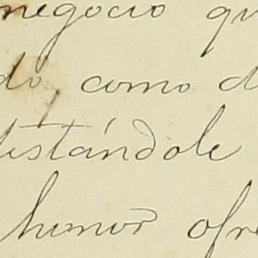 negocio qu
do, como d
tistándole
honor ofre